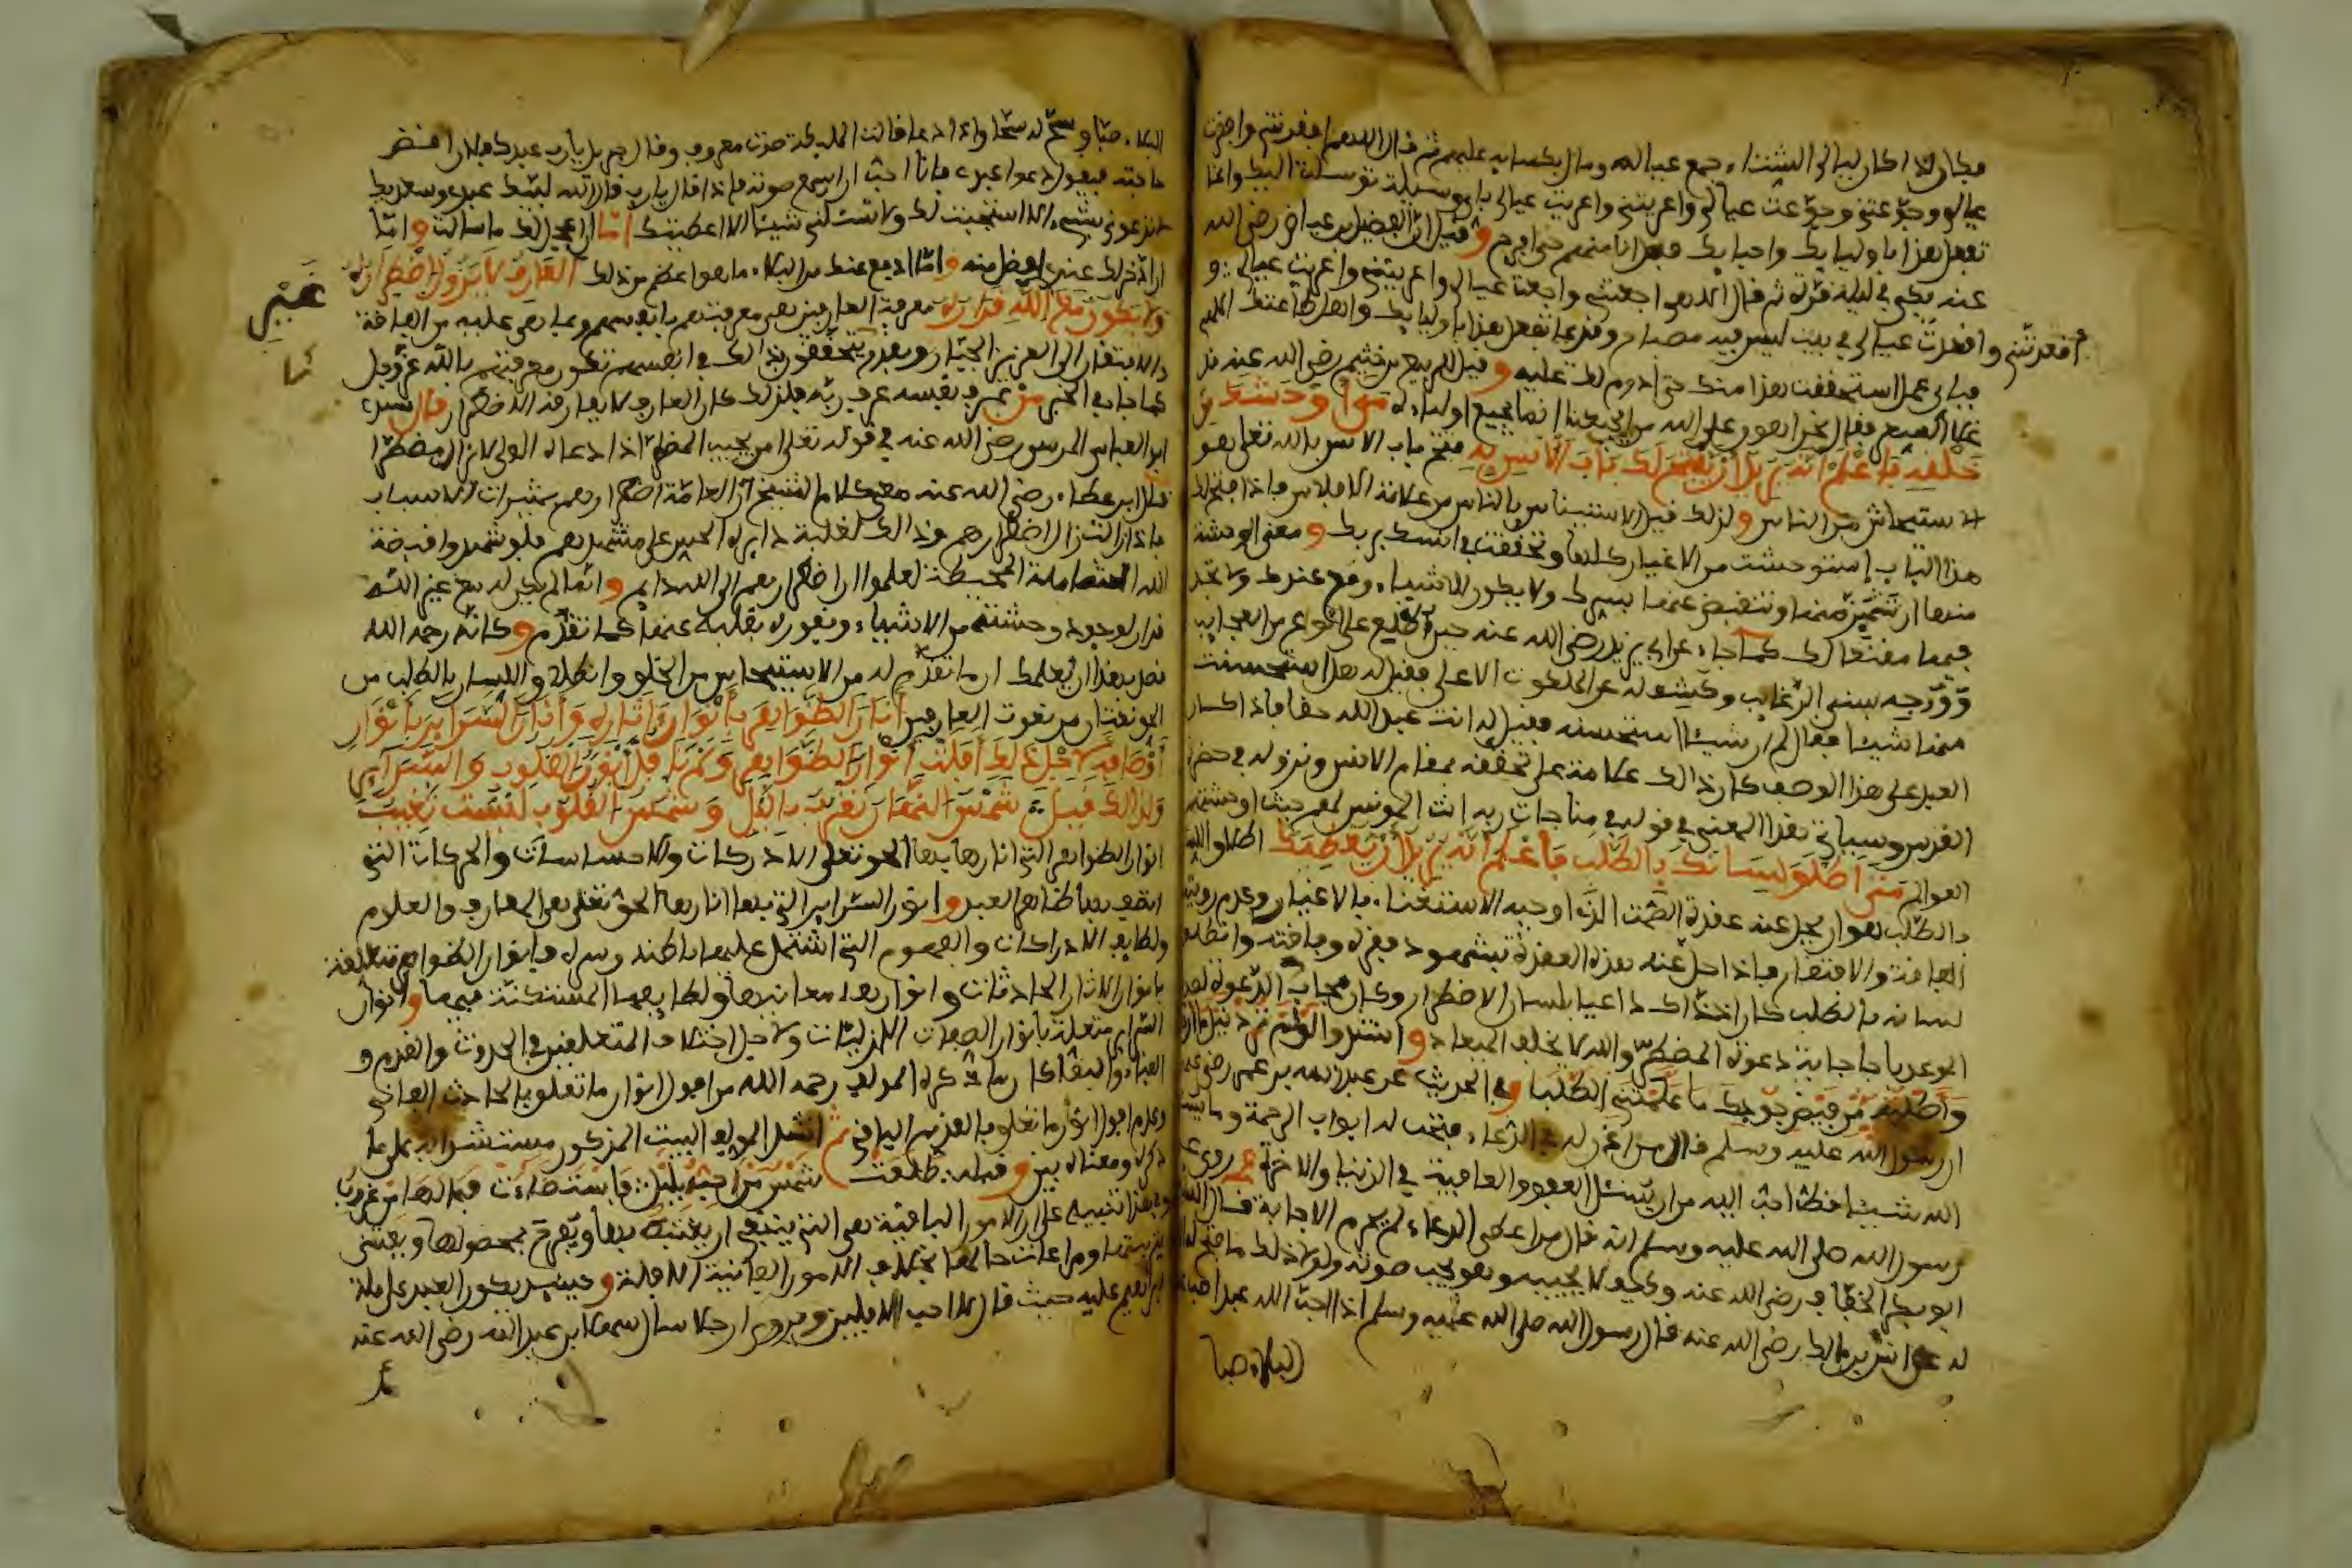 فكان إذا كان ليالي الشتاء جمع عياله ومال بكسائه عليهم ثم قال اللهم افقرتني وافقرت
عيالي وجوعتني وجوعت عيالي واعريتني واعريت عيالي باي وسيلة توسلتها اليك وانما
تفعل هذا باوليائك واحبابك فهل انا منهم حتى افرح وقيل ان الفضيل بن عياض رضي الله
عنه بكى في ليلة قرة ثم قال الاهي اجعتني واجعت عيالي واعريتني واعريت عيالي و
افقدتني وافقدت عيالي في بيت ليس فيه مصباح وقد تفعل هذا باوليائك واهل طاعتك الاهي
فباي عمل استحققت هذا منك حتى ادوم لك عليه وقيل للربيع بن خثيم رضي الله عنه قد
غلا السعر فقال نحن اهون على الله من ان يجيعنا انما يجيع اولياءه متى اوحشك من
خلقه فاعلم انه يريد ان يفتح لك باب الانس به فتح باب الانس بالله تعالى هو
الاستيحاش من الناس ولذلك قيل الاستيناس بالناس من علامة الافلاس فاذا فتح لك
هذا الباب استوحشت من الاغيار كلها وتحققت في انسك بربك ومعنى الوحشة
منها ان تشمئز منها وتنقبض عنها بسرك ولا يكون للاشياء وقع عندك ولا تجد
فيها مقنعا لك كما جاء عن ابي يزيد رضي الله عنه حين اطلع على انواع من العجائب
ووجه بسني الرغائب وكشف له عن الملكوت الاعلى فقيل له هل استحسنت
منها شيئا فقال لم ار شيئا استحسنه فقيل له انت عبد الله حقا فاذا كان
العبد على هذا الوصف كان ذالك علامة على تحققه بمقام الانس ونزوله في حضرة
القدس وسياتي هذا المعنى في قوله في مناجات ربه انت المونس لهم حيث اوحشتهم
العوالم متى اطلق لسانك بالطلب فاعلم انه يريد ان يعطيك اطلاق اللسان
بالطلب هو ان يحل عنه عقدة الصمت الذي اوجبه الاستغناء بالاغيار وعدم رؤية
الفاقة والافتقار فاذا حل عنه هذه العقدة بشهود فقره وفاقته وانطلق
لسانه بالطلب كان اذ ذاك داعيا بلسان الاضطرار وكان مجاب الدعوة لصدق
الوعد باجابة دعوة المضطر والله لا يخلف الميعاد وانشدوا لو لم ترد نيل ما ارجو
واطلبه من فيض جودك ما علمتني الطلبا وفي الحديث عن عبد الله بن عمر رضي الله عنه
ان رسول الله عليه وسلم قال من اذن له في الدعاء فتحت له ابواب الرحمة وما يسئل
الله شيئا قط احب اليه من ان يسئل العفو والعافية في الدنيا والاخرة وروي عن
رسول الله صلى الله عليه وسلم انه قال من اعطي الدعاء لم يحرم الاجابة قال الشيخ
ابو بكر الخفاف رضي الله عنه وكيف لا يجيبه وهو يحب صوته ولولا ذلك ما فتح له
له عن انس بن مالك رضي الله عنه قال رسول الله صلى الله عليه وسلم اذا احب الله عبدا صب
البلاء صبا
البلاء صبا وسحه له سحا واذا دعا قالت الملئكة صوت معروف وقال جبريل يارب عبدك فلان اقض
حاجته فيقول دعوا عبدي فانا احب ان اسمع صوته فاذا قال يارب قال الله لبيك عبدي وسعديك
لا تدعوني بشيء الا استجبت لك ولا تسئلني شيئا الا اعطيتك اما ان اعجل لك ما سالت واما
ان ادخر لك عندي افضل منه واما ادفع عنك من البلاء ما هو اعظم من ذلك العارف لا يزول اضطراره
ولا يكون مع الله قراره معرفة العارفين هي معرفتهم بانفسهم وبما هي عليه من الفاقة
غير
والافتقار الى العزيز الجبار وبقدر تحققهم بذالك في انفسهم تكون معرفتهم بالله عز وجل
كما جاء في الخبر من عرف نفسه عرف ربه فلذلك كان العارف لا يفارقه الاضطرار قال سيدي
ابو العباس المرسي رضي الله عنه في قوله تعالى امن يجيب المضطر اذا دعاه الولي لا يزال مضطرا
قال ابن عطاء رضي الله عنه معنى كلام الشيخ ان العامة اضطرارهم بمثيرات الاسباب
فاذا زالت زال اضطرارهم وذالك لغلبة دائرة الحس على مشهدهم فلو شهدوا قبضة
الله الشاملة المحيطة لعلموا ان اضطرارهم الى الله دائم وانما لم يكن له مع غير الله
قرار لوجود وحشته من الاشياء ونفوره بقلبه عنها كما تقدم وكانه رحمه الله
قصد بهذا ان يعلمك ان ما تقدم له من الاستيحاش من الخلق وانطلاق اللسان بالطلب من
الحق نعتان من نعوت العارفين انار الظواهر بانوار اثاره وانار السرائر بانوار
اوصافه لاجل ذلك افلت انوار الظواهر ولم تافل انوار القلوب والسرائر
ولذالك قيل ان شمس النهار تغرب بالليل وشمس القلوب ليست تغيب
انوار الظواهر التي انارها بها الحق تعلى الادركات والاحساسات والحركات التي
اتصف بها ظاهر العبد وانوار السرائر التي بها انارها الحق تعلى هي المعارف والعلوم
ولطايف الادراكات والفهوم التي اشتمل عليها باطنه وسره فانوار الظواهر متعلقة
بانوار الاثار الحادثات وانوار هذه معانيها ولطايفها المستكنة فيها وانوار
السرائر متعلقة بانوار الصفات الازليات ولاجل اختلاف المتعلقين في الحدوث والقدم و
الفناء والبقاء كان ما ذكره المولف رحمه الله من افول انوار ما تعلق بالحادث الفاني
وعدم افول انوار ما تعلق بالقديم الباقي ثم انشد المولف البيت المذكور مستشهدا به على ما
ذكره ومعناه بين وقبله طلعت شمس من احب بليل فاستضاءت فما لها من غروب
وفي هذا تنبيه على ان الامور الباقية هي التي ينبغي ان يغتبط بها ويفرح بحصولها ويعتنى
بتربيتها ومراعات حالها بخلاف الامور الفانية الافلة وحينئذ يكون العبد على ملة
ابراهيم عليه حيث قال لا احب الافلين وروي ان رجلا سال سهل بن عبد الله رضي الله عنه